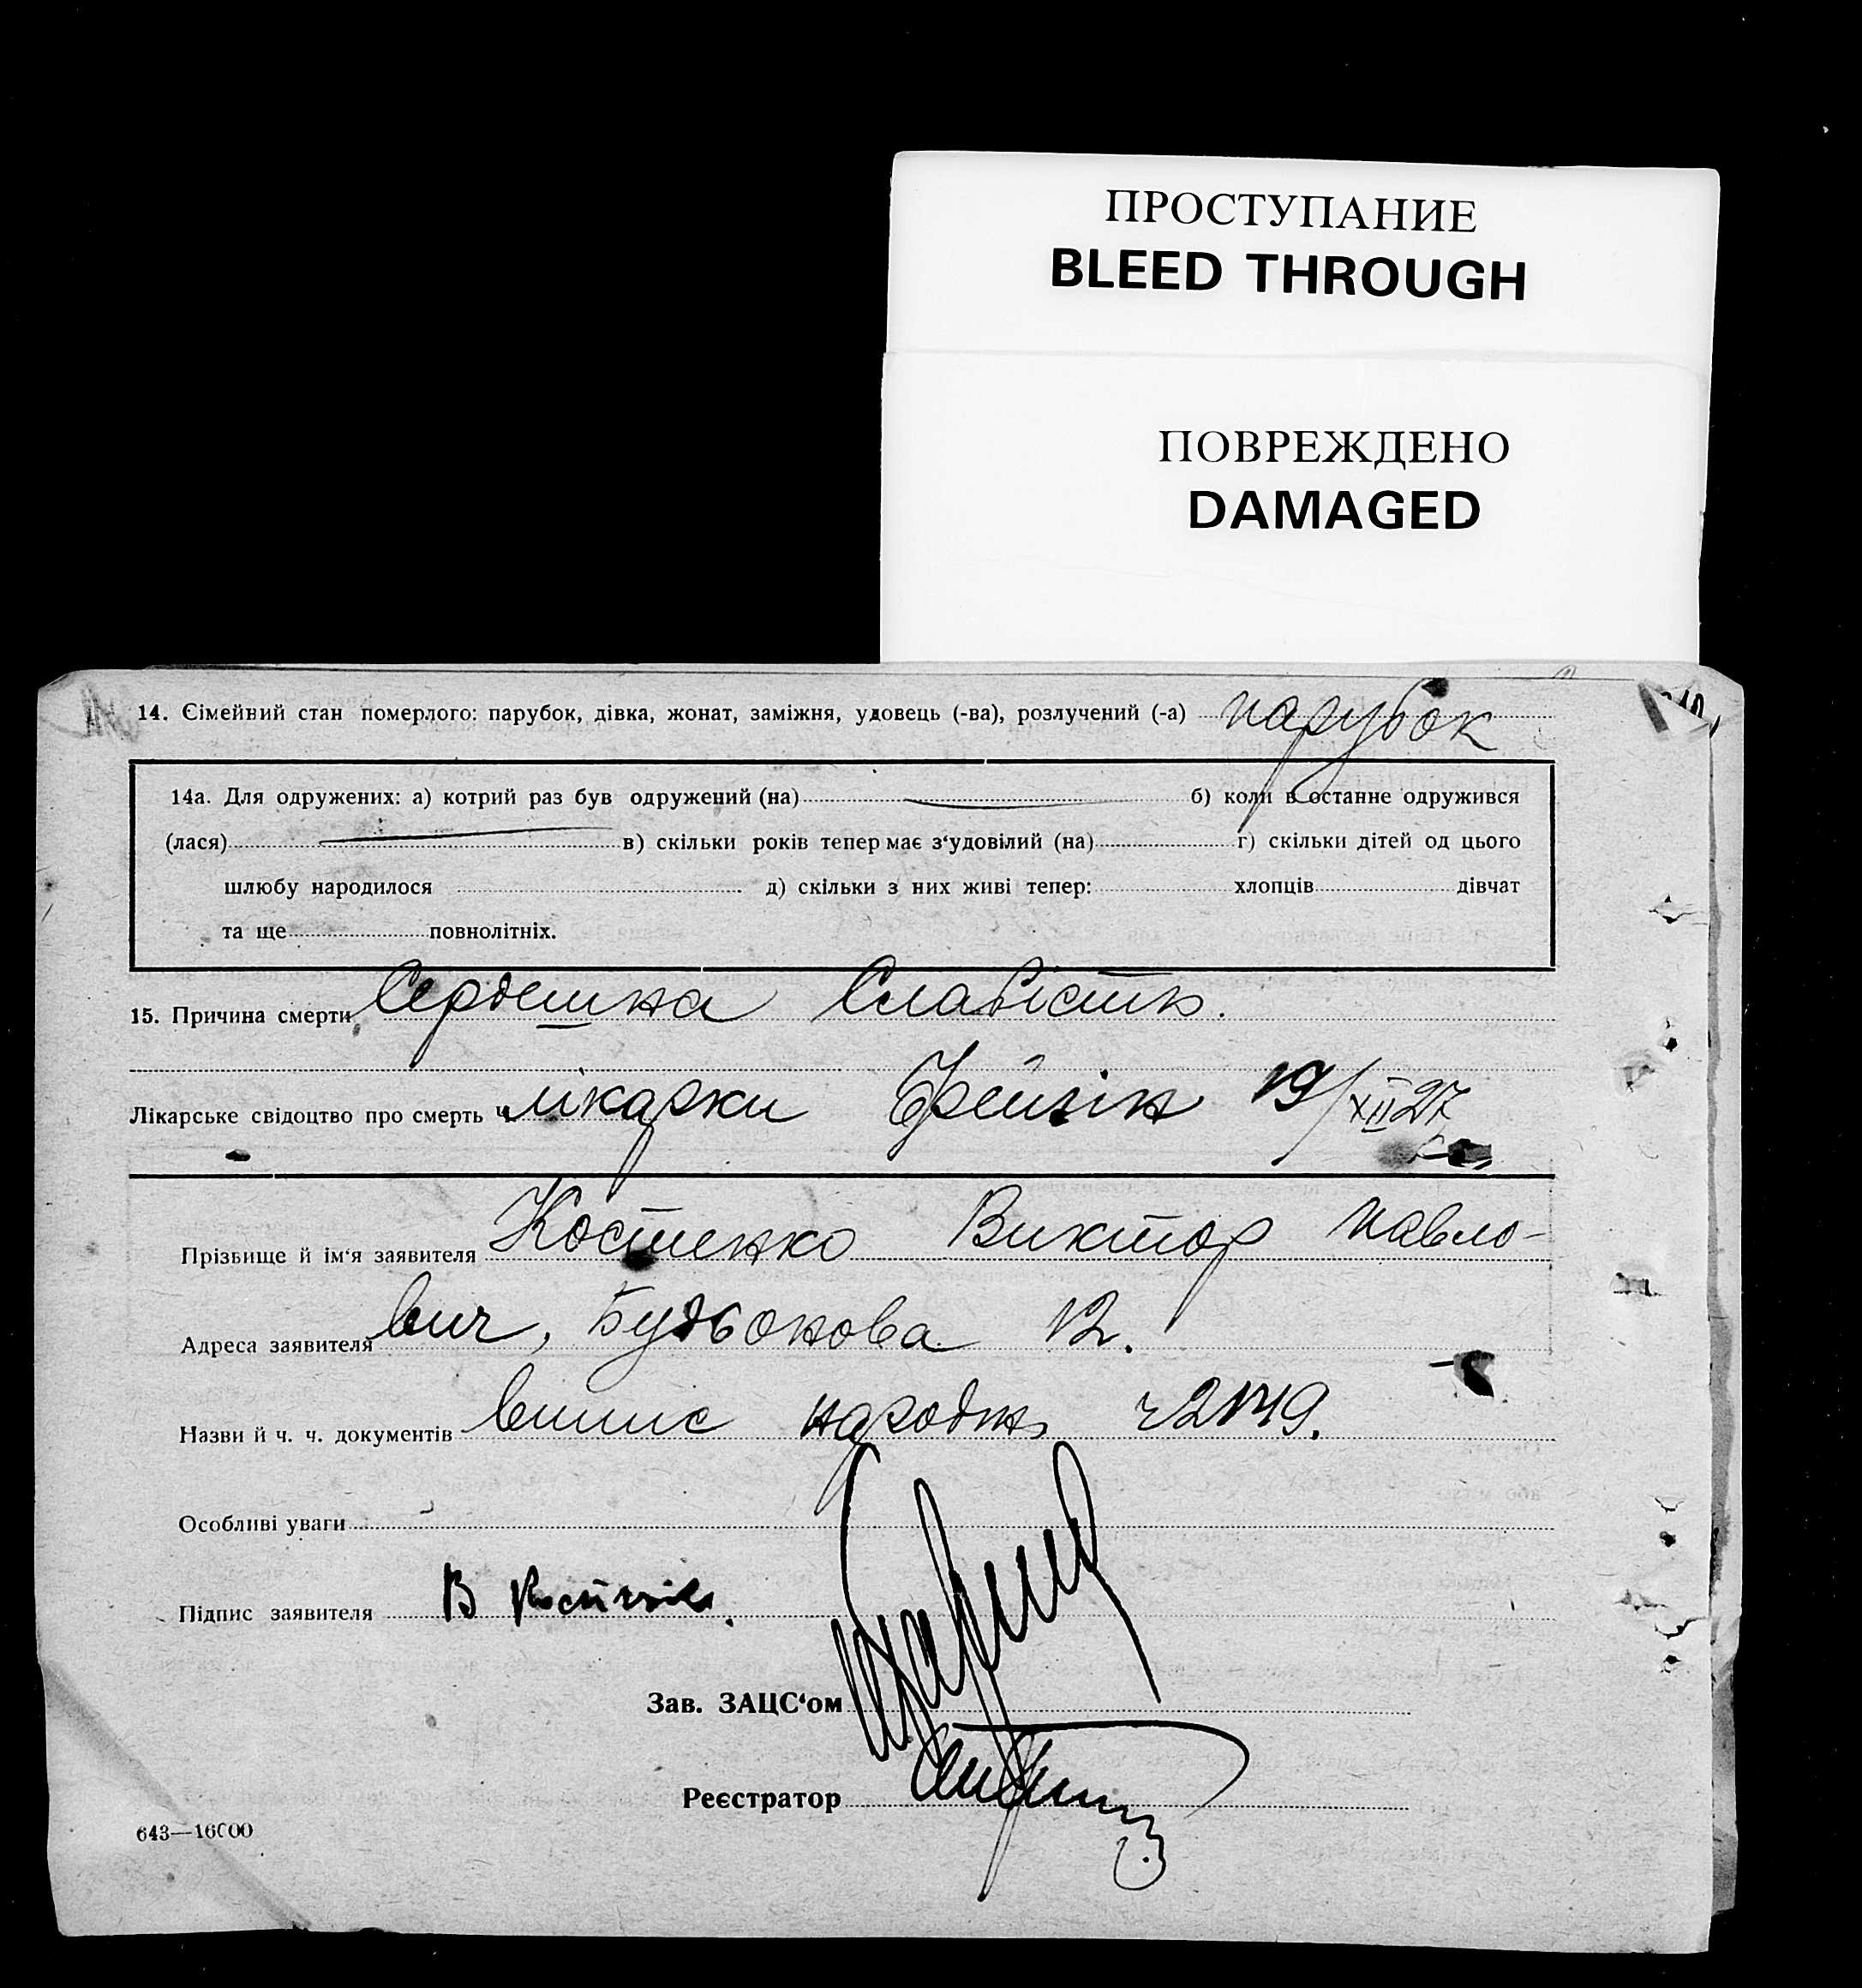 ПРОСТУПАНИЕ
BLEED THROUGH
ПОВРЕЖДЕНО
DAMAGED
14. Сімейний стан померлого: парубок, дівка, жонат, заміжня, удовець (-ва), розлучений (-а) парубок
14а. Для одружених: а) котрий раз був одружений (на) б) коли в останне одружився
(лася) в) скільки років тепер має з‘удовілий (на) г) скільки дітей од цього
шлюбу народилося д) скільки з них живі тепер: хлопців дівчат
та ще повнолітніх.
15. Причина смерти Сердешна Слабість.
Лікарське свідоцтво про смерть ч. лікарки 19/XII 27
Прізвище й ім‘я заявителя Костенко Виктор Павло-
Адреса заявителя вич, Будьонова 12.
Назви й ч. ч. документів випис народж ч 2149.
Особливі уваги
Підпис заявителя В
Зав. ЗАЦС‘ом
Реєстратор
643—16000